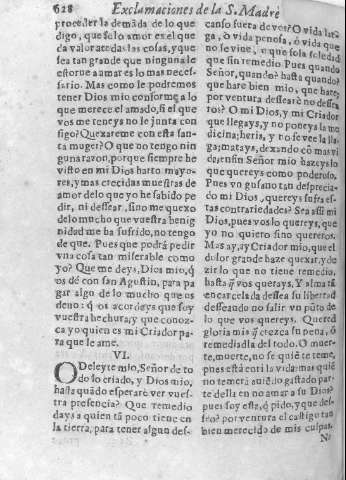 628 Exclamaciones de la S. Madre
proceder la demãda de lo que
digo, que solo amor es el que
da valor a todas las cosas, y que
sea tan grande que ninguna le
estorue a amar es lo mas neces-
sario. Mas como le podremos
tener Dios mio conforme a lo
que merece el amado, si el que
vos me teneys no le junta con
sigo? Quexareme con esta san-
ta muger? O que no tengo nin
guna razon, porque siempre he
visto en mi Dios harto mayo-
res, y mas crecidas muestras de
amor de lo que yo he sabido pe
dir, ni dessear, sino me quexo
de lo mucho que vuestra benig
nidad me ha sufrido, no tengo
de que. Pues que podrà pedir
vna cosa tan miserable como
yo? Que me deys, Dios mio, q̃
os dè con san Agustin, para pa
gar algo de lo mucho que os
deuo: q̃ os acordeys que soy
vuestra hechura, y que conoz-
ca yo quien es mi Criador pa-
ra que le ame.
VI.
O Deleyte mio, Señor de to
do lo criado, y Dios mio,
hasta quãdo esperarè ver vues-
tra presencia? Que remedio
days a quien tã poco tiene en
la tierra, para tener algun des-
canso fuera de vos? O vida lar-
ga, ò vida penosa, ò vida que
no se viue, ò que sola soledad
que sin remedio Pues quando
Señor, quando? hasta quando?
que hare bien mio, que hare?
por ventura dessearè no dessea
ros? O mi Dios, y mi Criador
que llegays, y no poneys la me
dicina; heris, y no se vee la lla-
ga; matays, dexando cõ mas vi
da; en fin Señor mio hazeys lo
que quereys como poderoso.
Pues vn gusano tan desprecia-
do mi Dios, quereys sufra es-
tas contrariedades? Sea assi mi
Dios, pues vos lo quereys, que
yo no quiero sino quereros.
Mas ay, ay Criador mio, que el
dolor grande haze quexar, y de
zir lo que no tiene remedio,
hasta q̃ vos querays, Y alma tã
encarcelada dessea su libertad
desseando no salir vn pũto de
lo que vos quereys. Quered
gloria mia q̃ crezca su pena, ò
remedialda del todo. O muer-
te, muerte, no se quiẽ te teme,
pues està en ti la vida: mas quiẽ
no temerà auiẽdo gastado par-
te della en no amar a su Dios?
pues soy esta, q̃ pido, y que des-
seo? por ventura el castigo tan
bien merecido de mis culpas.